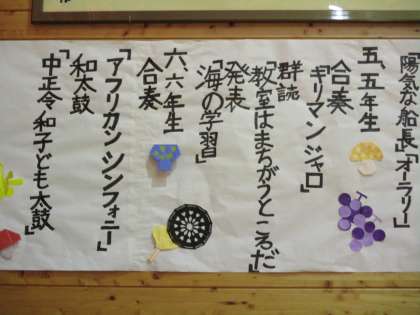 「陽気な船長」「オーラリー」
五、五年生
合奏
「キリマンジャロ」
群読
「教室はまちがうところだ」
発表
「海の学習」
六、六年生
合奏
「アフリカンシンフォニー」
和太鼓
「中正令和子ども太鼓」